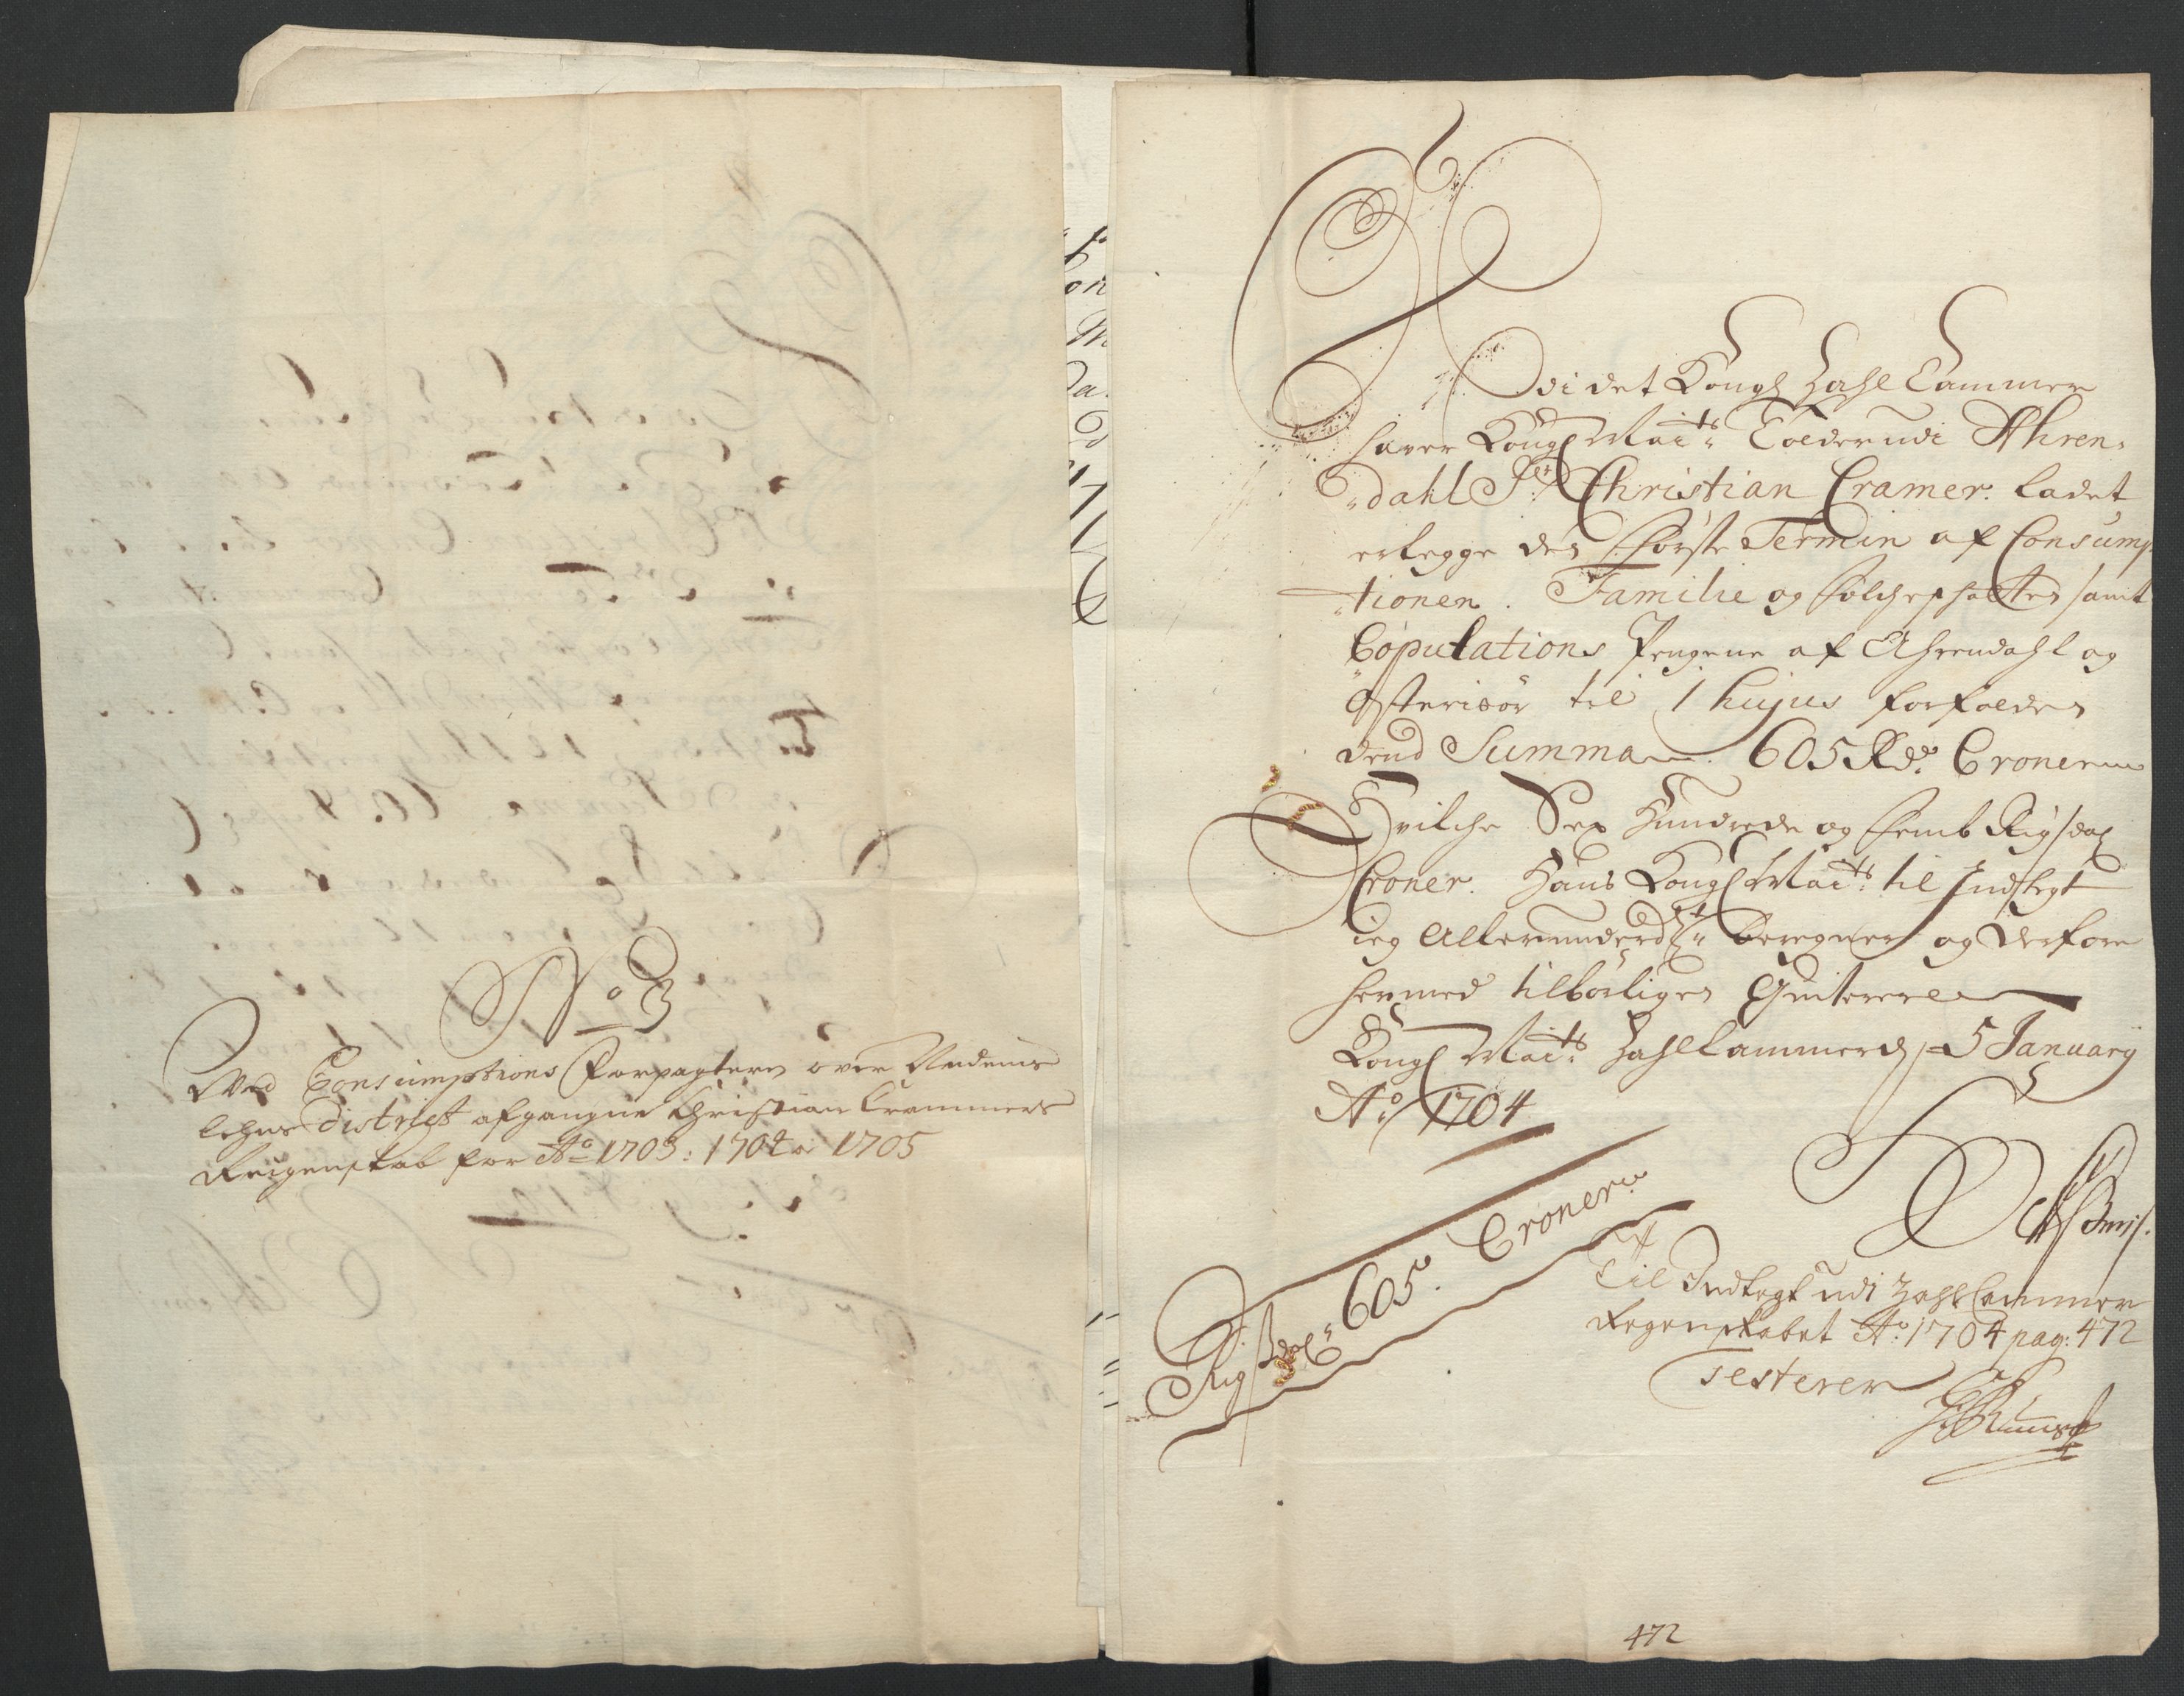 No 3
Ved Consumptions Forpagteren over Nedenes
lehns District afgangne Christian Crammers
Reigenskab for Ao 1703: 1704 og 1705
Udi det Kongl Zahl Cammer
haver Kongl Maits Tolder udi Ahren-
dahl Sr Christian Cramer. ladet
erlegge den Første Termin af Consump-
tionen. Familie og Folcheskatten samt
Copulations Pengene af Ahrendahl og
Østerisør til 1 hujus forfalden
dend Summa 605 Rdr Croner
Hvilche Sex Hundrede og Femb Rigsdal
Croner. Hans Kongl Maits til Indtegt
ieg Allerunderdt beregner og derfore
hermed tilbørligen Qviterer
Kongl Maits Zahlkammerd 5 January
Ao 1704
Rigsdal 605. Croner
Til Indtegt udi Zahl Cammer
Regenskabet Ao 1704 pag: 472
Testerer
472